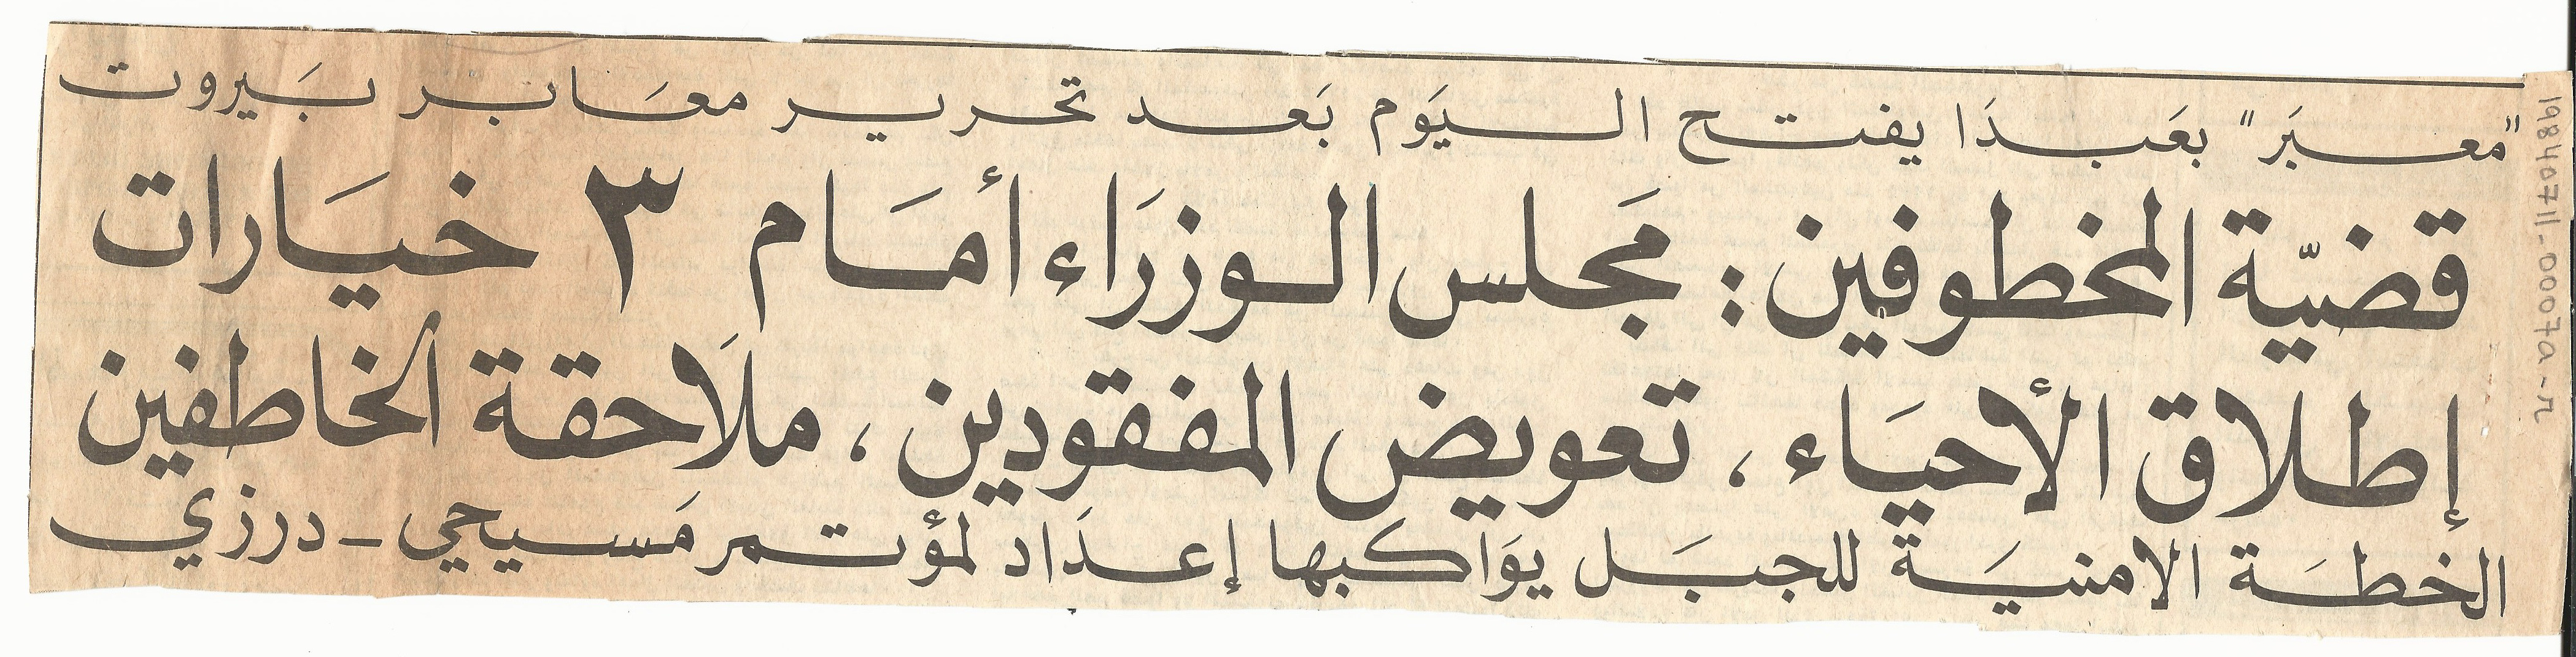 "معبَر" بعَبدَا يفتح اليَوم بَعد تحرير معَابر بَيروت
قضيّة المخطوفين: مَجلس الوزرَاء أمَام ٣ خيَارات
إطلاق الأحيَاء، تعويض المفقودين، ملَاحقة الخاطفين
الخطَة الامنيَة للجبَل يوَاكبها إعدَاد لمؤتمر مَسيحي - درزي
19840711-0007a-n